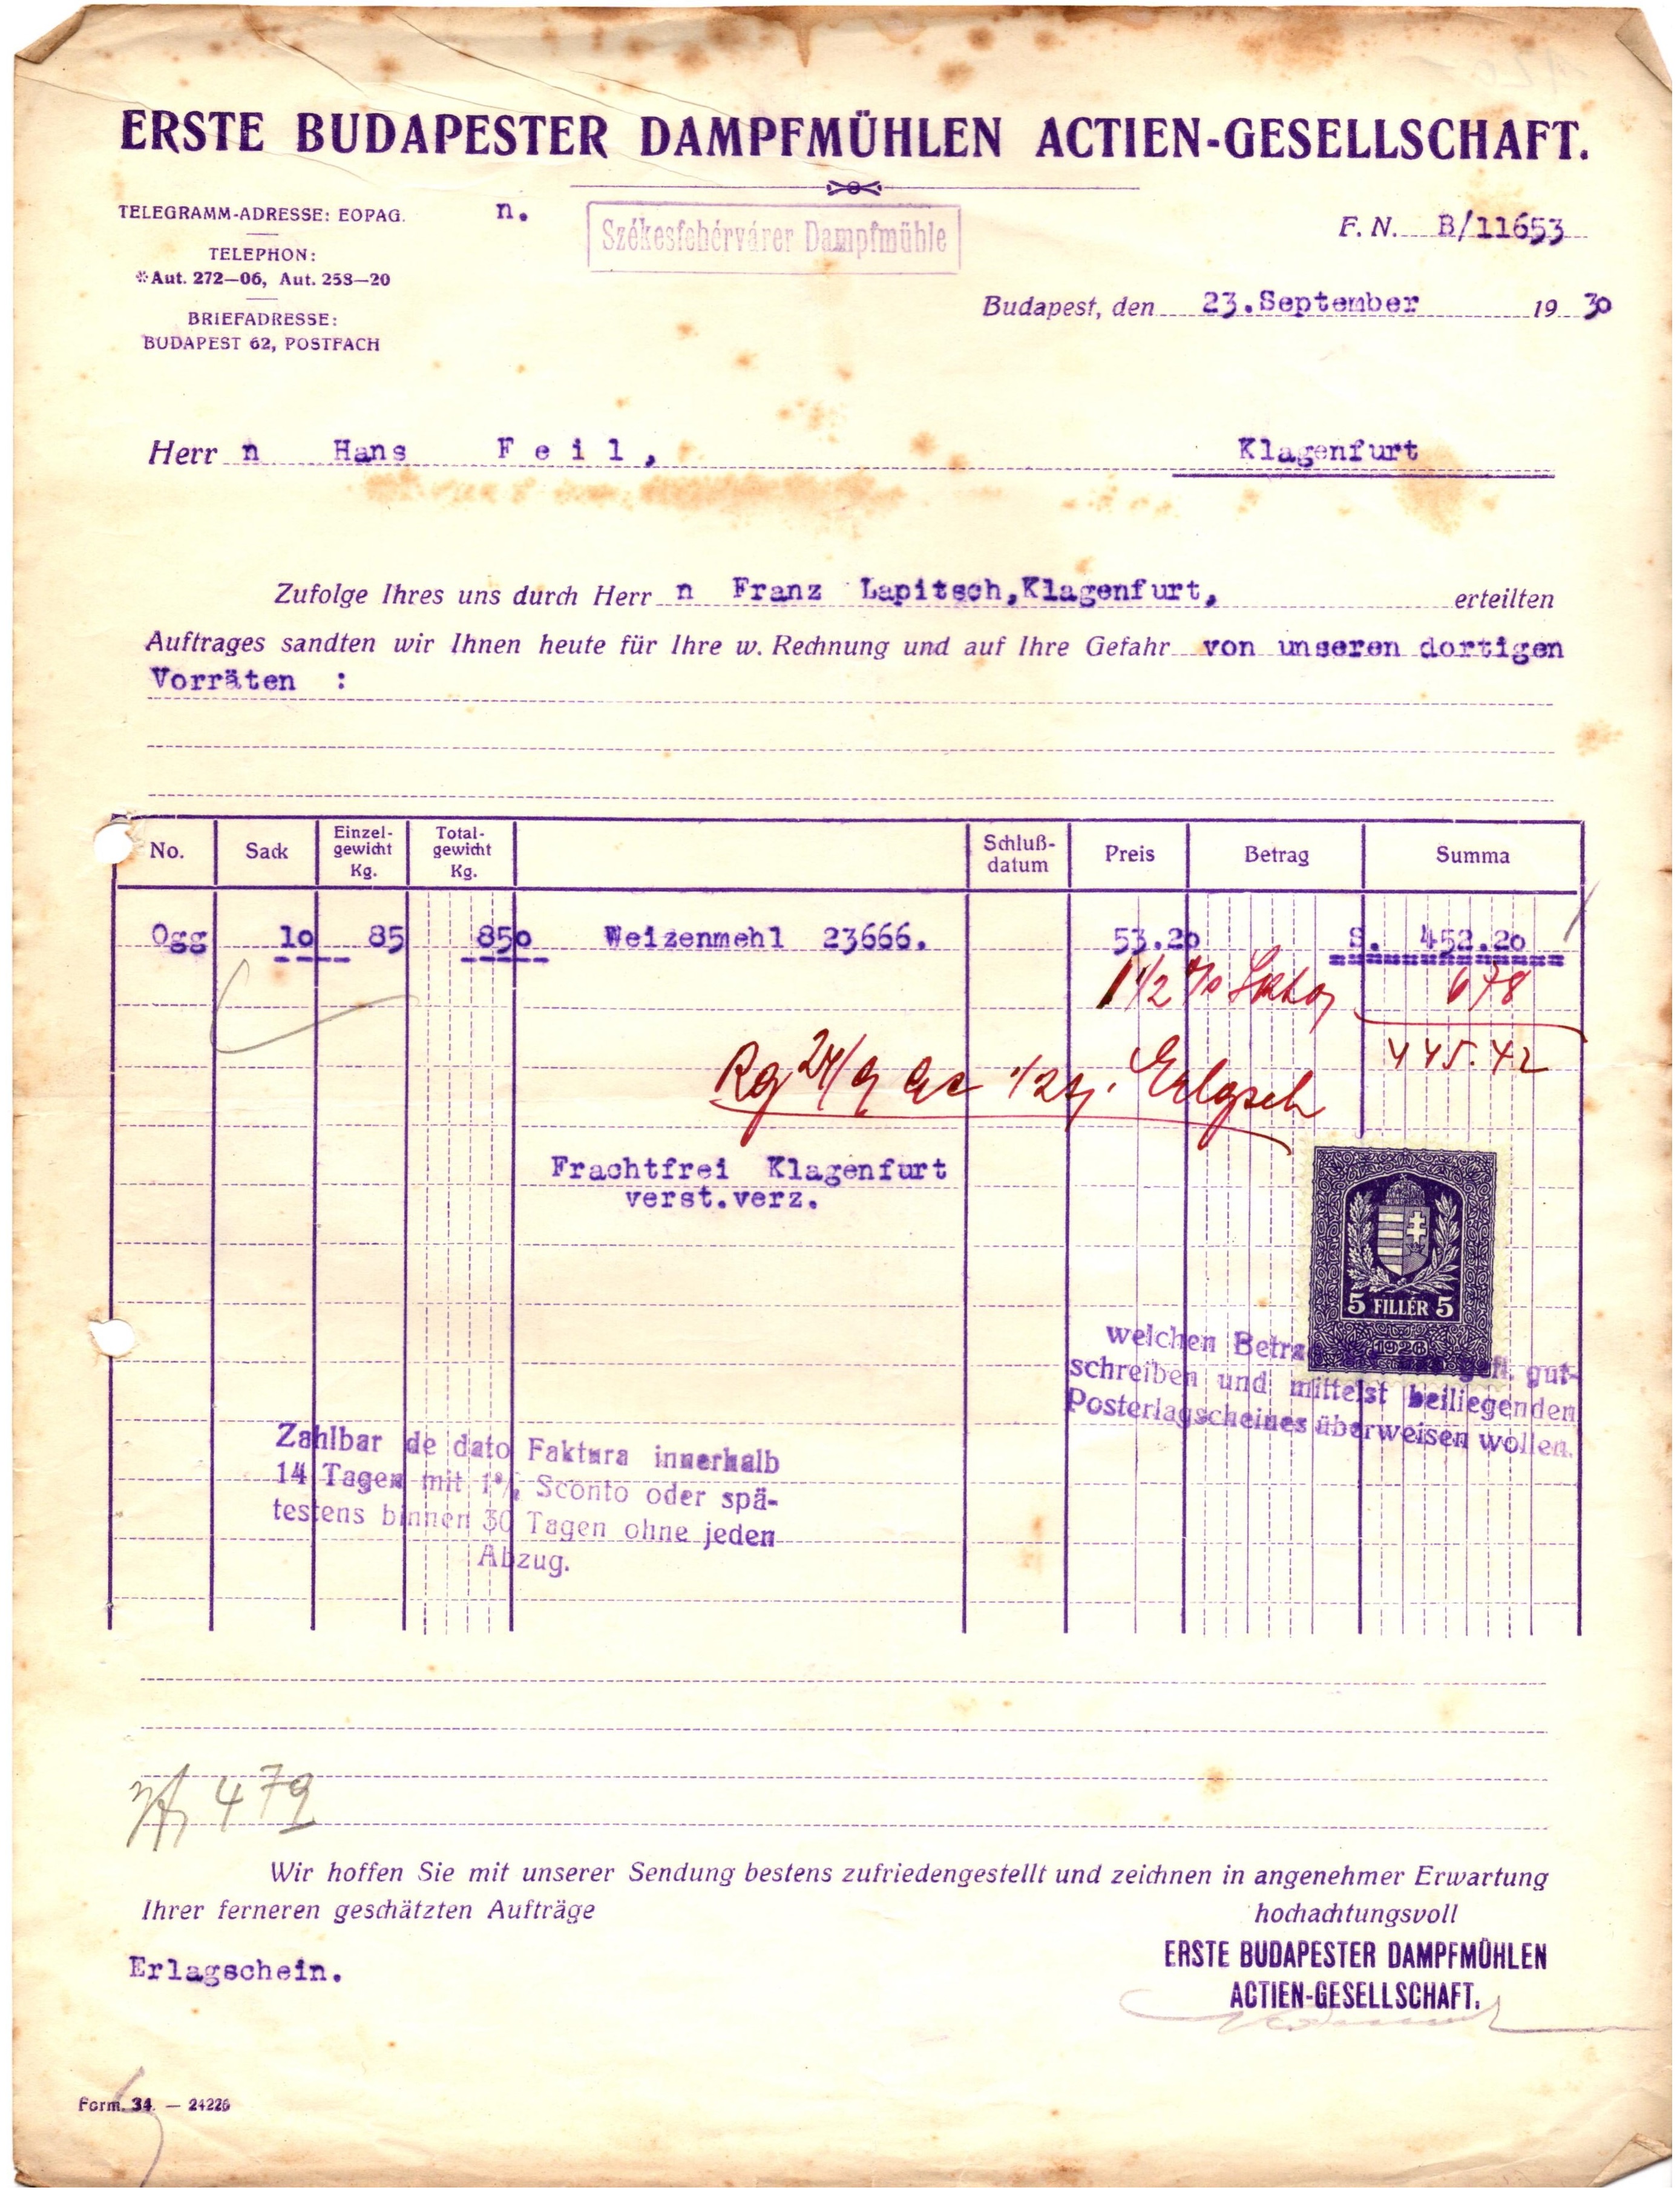 ERSTE BUDAPESTER DAMPFMÜHLEN ACTIEN-GESELLSCHAFT.
TELEGRAMM-ADRESSE: EOPAG.
n.
Székesfehérvárer Dampfmühle
F. N. B/11653
TELEPHON:
*Aut. 272—06, Aut. 258—20
Budapest, den 23.September 19 30
BRIEFADRESSE:
BUDAPEST 62, POSTFACH
Herr n Hans Feil, Klagenfurt
Zufolge Ihres uns durch Herr n Franz Lapitsch,Klagenfurt, erteilten
Auftrages sandten wir Ihnen heute für Ihre w. Rechnung und auf Ihre Gefahr von unseren dortigen
Vorräten :
No. Sack Einzel-gewicht Kg. Total-gewicht Kg. Schluß-datum Preis Betrag Summa
Ogg 10 85 850 Weizenmehl 23666. 53.20 S. 452.20
1 1/2 % 678
445.42
24/9
Frachtfrei Klagenfurt
verst.verz.
5 FILLÉR 5
1926
welchen gut-
schreiben und mittelst beiliegenden
Posterlagscheines überweisen wollen.
Zahlbar de dato Faktura innerhalb
14 Tagen mit 1% Sconto oder spä-
testens binnen 30 Tagen ohne jeden
Abzug.
479
Wir hoffen Sie mit unserer Sendung bestens zufriedengestellt und zeichnen in angenehmer Erwartung
Ihrer ferneren geschätzten Aufträge
hochachtungsvoll
ERSTE BUDAPESTER DAMPFMÜHLEN
ACTIEN-GESELLSCHAFT.
Erlagschein.
Form. 34. — 24226